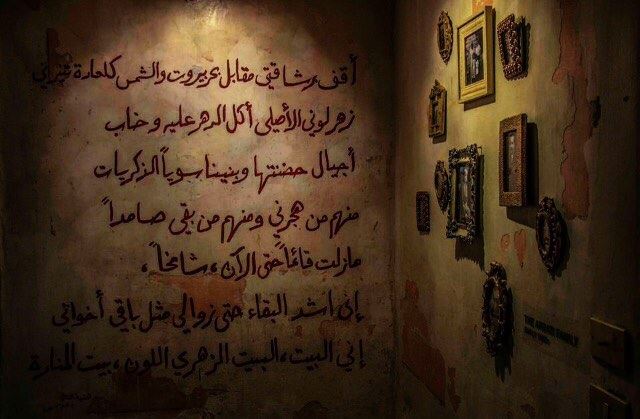 أقف برشاقتي مقابل بحر بيروت والشمس كالعادة تنيرني
زهر لوني الأصلي أكل الدهر عليه وخاب
أجيال حضنتها وبنينا سوياً الذكريات
منهم من هجرني ومنهم من بقى صامداً
مازلت قائماً حتى الآن، شامخاً،
إني انشد البقاء حتى زوالي مثل باقي أخواتي
إني البيت، البيت الزهري اللون، بيت المنارة